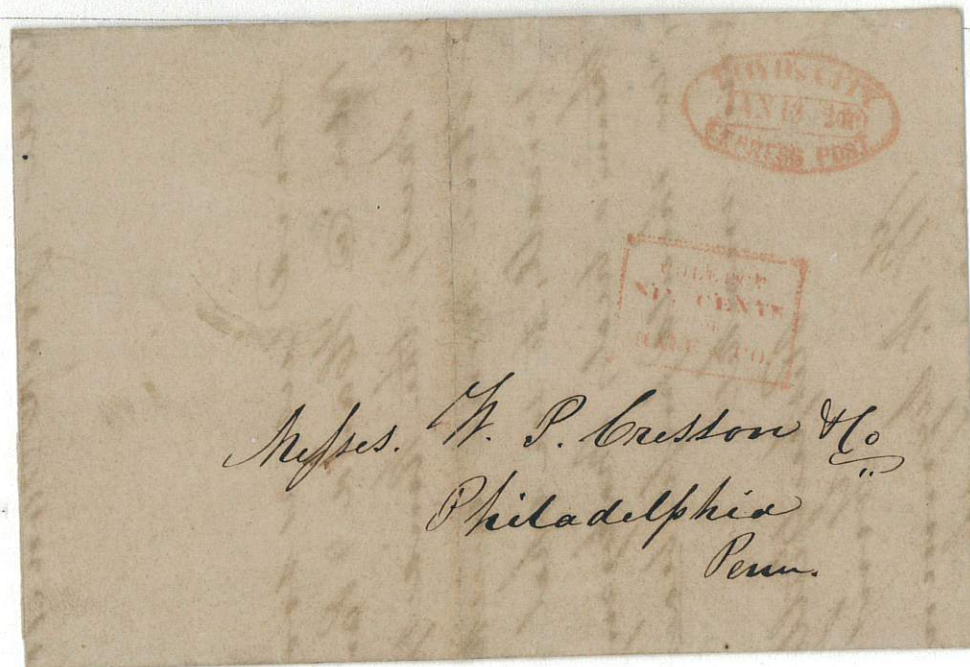 BOYD'S CITY
JAN 13
EXPRESS POST
COLLECT
SIX CENTS
HALE & CO.
Messrs. W. P. Cresson & Co
Philadelphia
Penn.